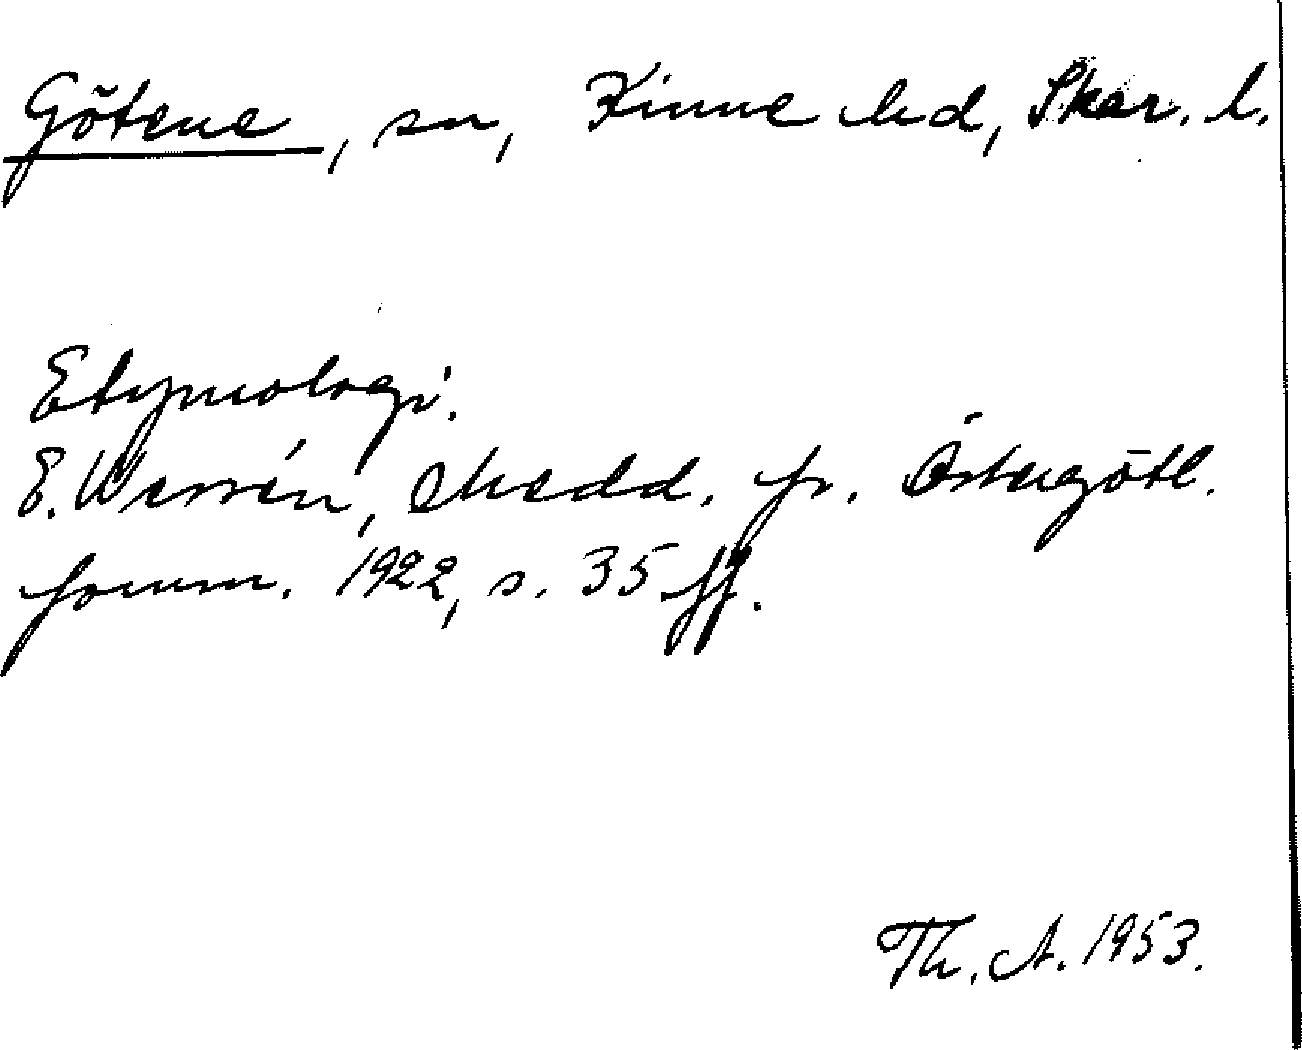 Götene, sn, Kinne hd, Skar. l.
Etymologi.
E. Wessén, Medd. fr. Östergötl.
fornm. 1922, s. 35 ff.
Th. A. 1953.